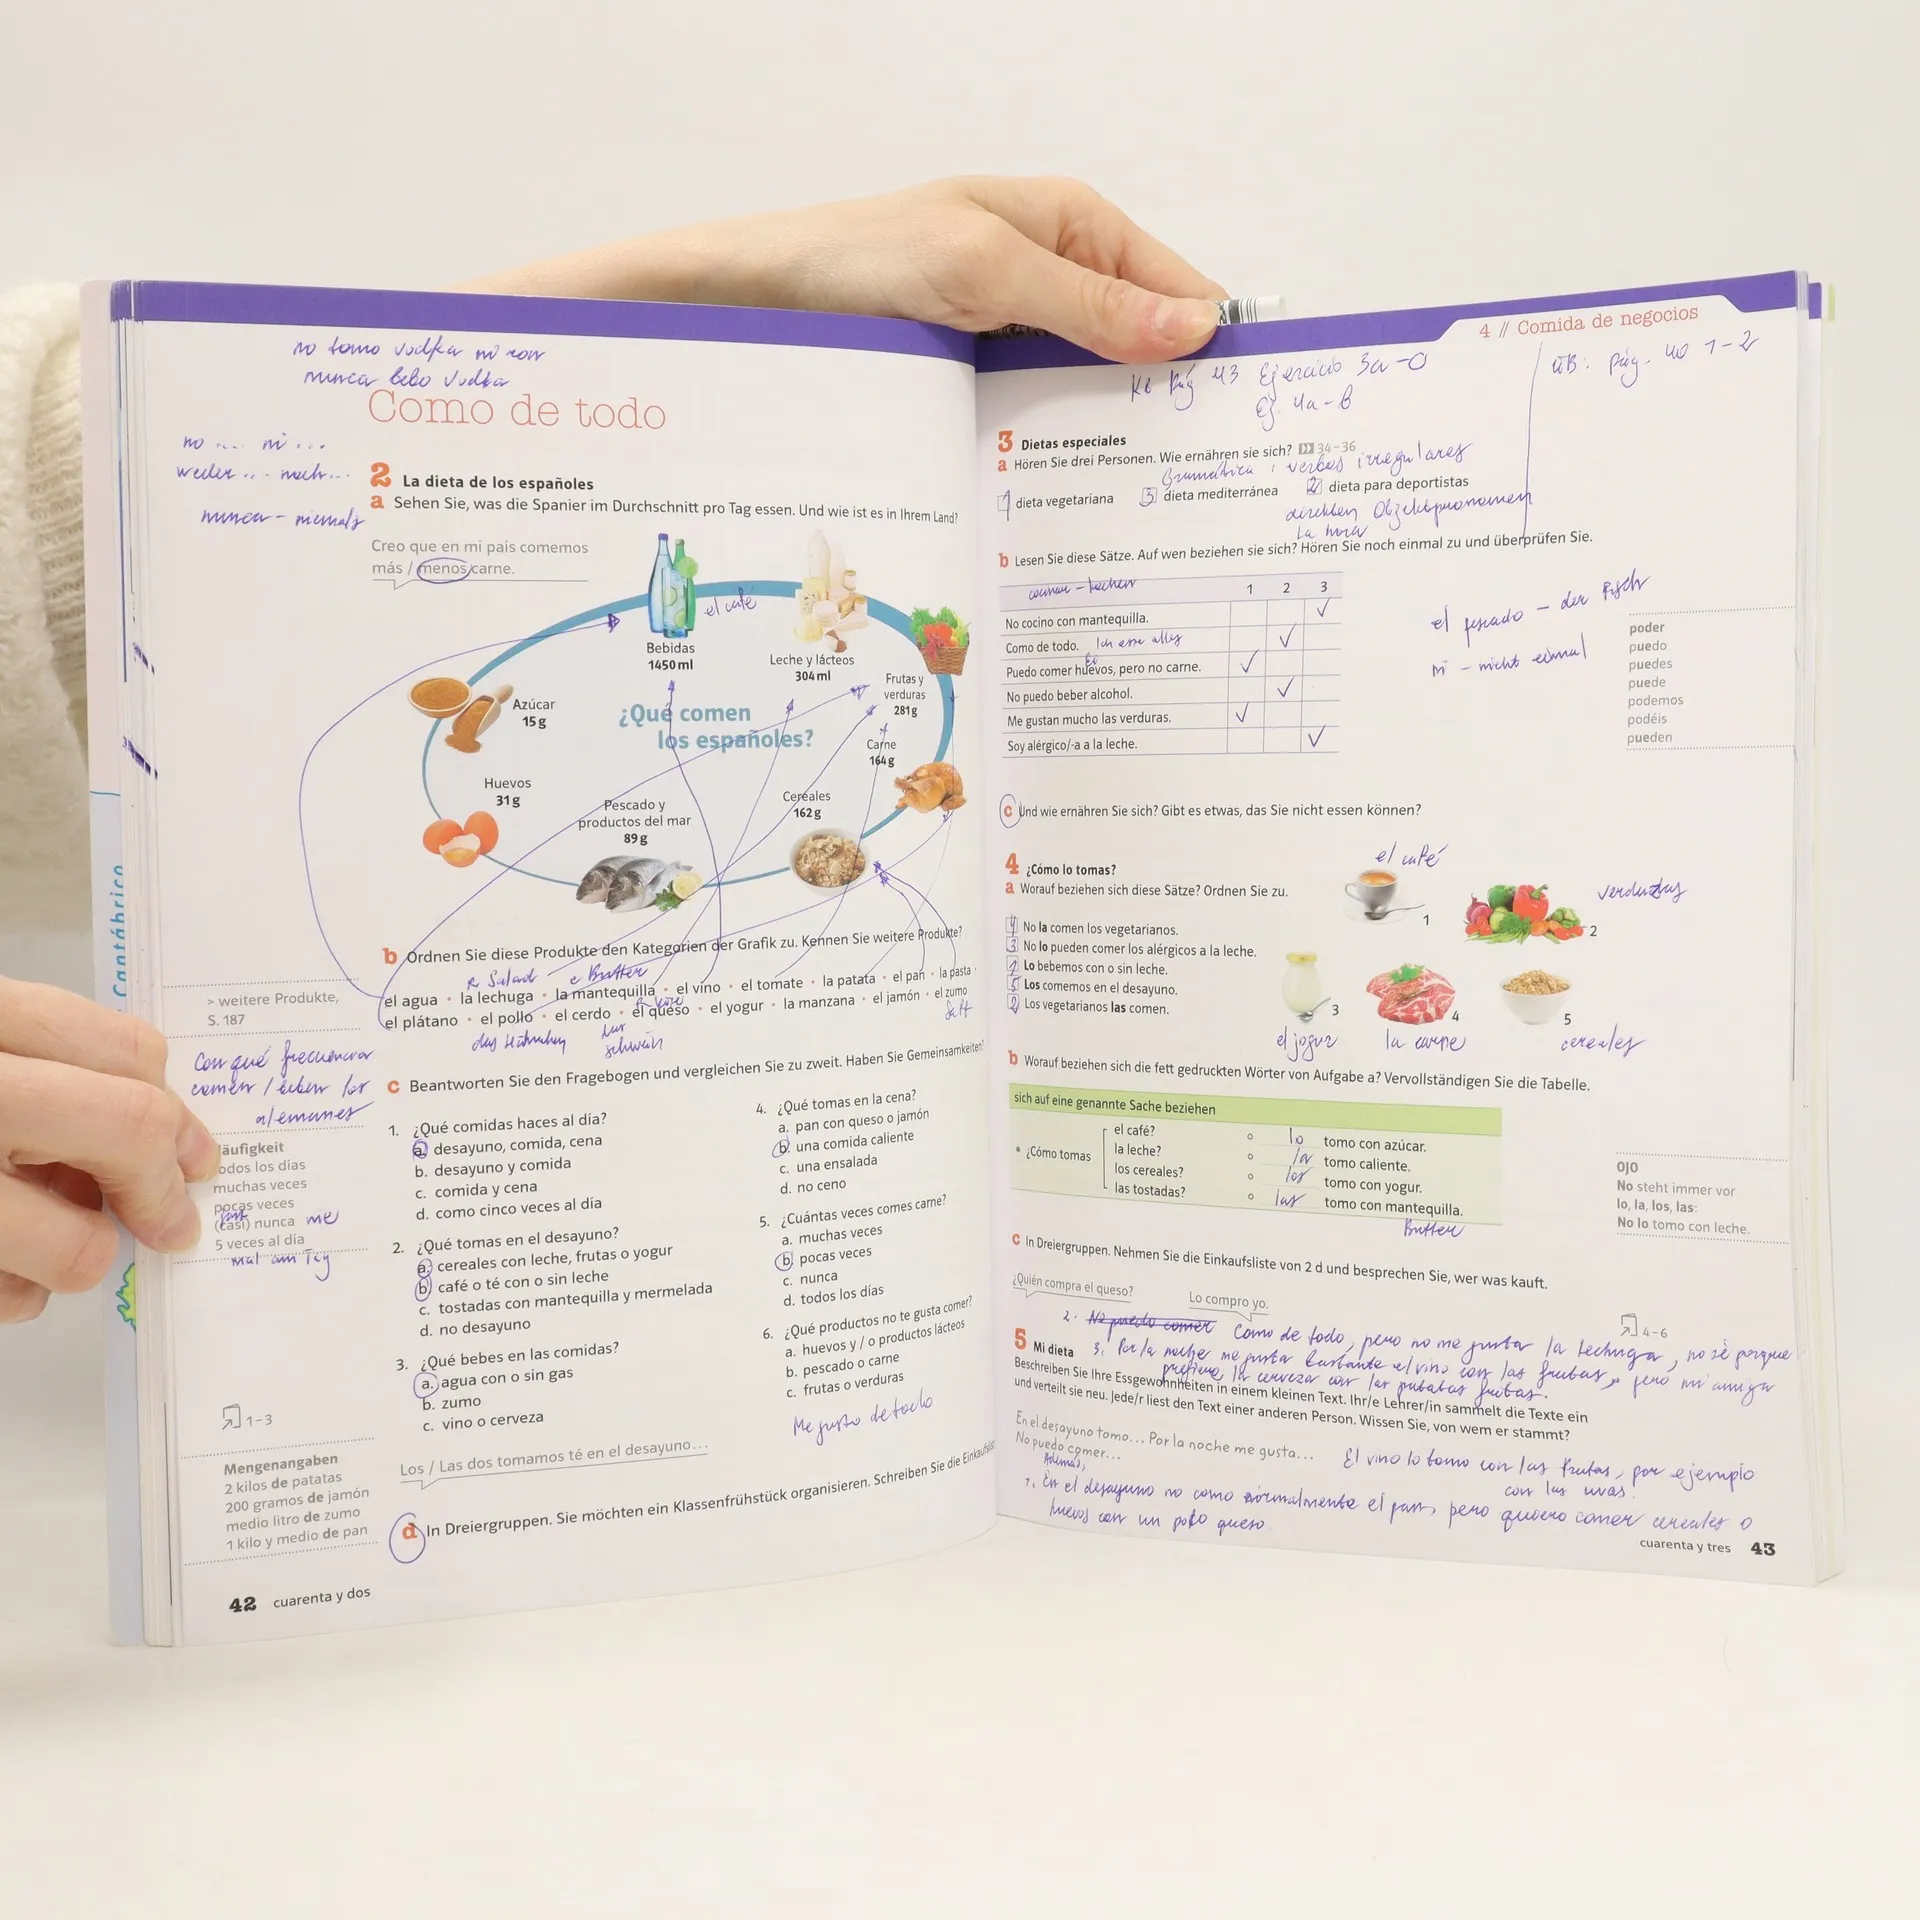 no tomo vodka ni ron
nunca bebo vodka
Como de todo
no ... ni ...
weder ... noch ...
nunca - niemals
2 La dieta de los españoles
a Sehen Sie, was die Spanier im Durchschnitt pro Tag essen. Und wie ist es in Ihrem Land?
Creo que en mi país comemos
más / menos carne.
el café
Bebidas
1450 ml
Leche y lácteos
304 ml
Frutas y
verduras
281 g
Azúcar
15 g
¿Qué comen
los españoles?
Carne
164 g
Huevos
31 g
Pescado y
productos del mar
89 g
Cereales
162 g
b Ordnen Sie diese Produkte den Kategorien der Grafik zu. Kennen Sie weitere Produkte?
Salad e Butter
el agua • la lechuga • la mantequilla • el vino • el tomate • la patata • el pan • la pasta •
el plátano • el pollo • el cerdo • el queso • el yogur • la manzana • el jamón • el zumo
das Hähnchen
schwein
Saft
> weitere Produkte,
S. 187
Con qué frecuencia
comen / beben los
alemanes
äufigkeit
odos los días
muchas veces
pocas veces
(casi) nunca me
5 veces al día
mal am Tag
c Beantworten Sie den Fragebogen und vergleichen Sie zu zweit. Haben Sie Gemeinsamkeiten?
1. ¿Qué comidas haces al día?
a. desayuno, comida, cena
b. desayuno y comida
c. comida y cena
d. como cinco veces al día
2. ¿Qué tomas en el desayuno?
a. cereales con leche, frutas o yogur
b. café o té con o sin leche
c. tostadas con mantequilla y mermelada
d. no desayuno
3. ¿Qué bebes en las comidas?
a. agua con o sin gas
b. zumo
c. vino o cerveza
4. ¿Qué tomas en la cena?
a. pan con queso o jamón
b. una comida caliente
c. una ensalada
d. no ceno
5. ¿Cuántas veces comes carne?
a. muchas veces
b. pocas veces
c. nunca
d. todos los días
6. ¿Qué productos no te gusta comer?
a. huevos y / o productos lácteos
b. pescado o carne
c. frutas o verduras
Me gusto de todo
Los / Las dos tomamos té en el desayuno...
1–3
Mengenangaben
2 kilos de patatas
200 gramos de jamón
medio litro de zumo
1 kilo y medio de pan
d In Dreiergruppen. Sie möchten ein Klassenfrühstück organisieren. Schreiben Sie die Einkaufslist
42 cuarenta y dos
Cantábrico
4 // Comida de negocios
Pág 43 Ejercicio 3a-c
Ej. 4a-b
ÜB: pág. 40 1-2
3 Dietas especiales
a Hören Sie drei Personen. Wie ernähren sie sich? 34–36
Gramática: verbos irregulares
1 dieta vegetariana 3 dieta mediterránea 2 dieta para deportistas
direkten Objektpronomen
La hora
b Lesen Sie diese Sätze. Auf wen beziehen sie sich? Hören Sie noch einmal zu und überprüfen Sie.
cocinar - kochen 1 2 3
No cocino con mantequilla. ✓
Como de todo. Ich esse alles ✓
Puedo comer huevos, pero no carne. ✓
Ei
No puedo beber alcohol. ✓
Me gustan mucho las verduras. ✓
Soy alérgico/-a a la leche. ✓
el pescado - der Fisch
ni - nicht einmal
poder
puedo
puedes
puede
podemos
podéis
pueden
c Und wie ernähren Sie sich? Gibt es etwas, das Sie nicht essen können?
4 ¿Cómo lo tomas?
a Worauf beziehen sich diese Sätze? Ordnen Sie zu.
el café
1
2
4 No la comen los vegetarianos.
3 No lo pueden comer los alérgicos a la leche.
1 Lo bebemos con o sin leche.
5 Los comemos en el desayuno.
2 Los vegetarianos las comen.
3
4
5
el jogur
la carne
cereales
b Worauf beziehen sich die fett gedruckten Wörter von Aufgabe a? Vervollständigen Sie die Tabelle.
sich auf eine genannte Sache beziehen
• ¿Cómo tomas
el café? ○ lo tomo con azúcar.
la leche? ○ la tomo caliente.
los cereales? ○ los tomo con yogur.
las tostadas? ○ las tomo con mantequilla.
Butter
OJO
No steht immer vor
lo, la, los, las:
No lo tomo con leche.
c In Dreiergruppen. Nehmen Sie die Einkaufsliste von 2 d und besprechen Sie, wer was kauft.
¿Quién compra el queso?
Lo compro yo.
4–6
2. No puedo comer Como de todo, pero no me gusta la lechuga, no sé porque
5 Mi dieta
3. Por la noche me gusta bastante el vino con las frutas, pero mi amiga
prefiere la cerveza con las patatas fritas.
Beschreiben Sie Ihre Essgewohnheiten in einem kleinen Text. Ihr/e Lehrer/in sammelt die Texte ein
und verteilt sie neu. Jede/r liest den Text einer anderen Person. Wissen Sie, von wem er stammt?
En el desayuno tomo... Por la noche me gusta...
No puedo comer...
El vino lo tomo con las frutas, por ejemplo
con las uvas.
Además,
1. En el desayuno no como normalmente el pan, pero quiero comer cereales o
huevos con un poco queso.
cuarenta y tres 43